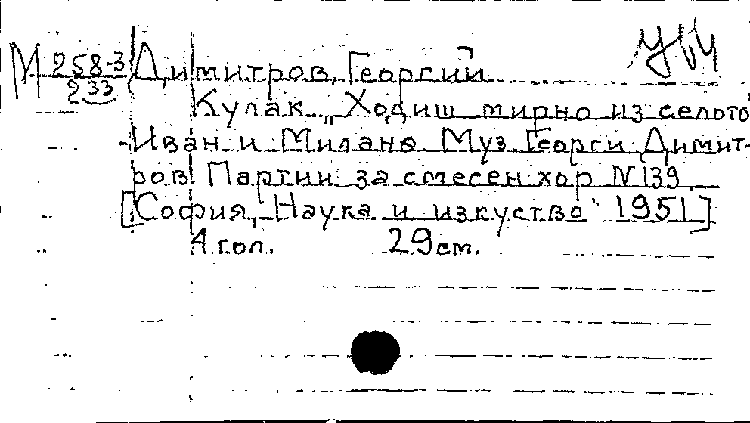 М 258-3 Димитров, Георгий
233
Кулак. „Ходиш мирно из селото
Иван и Милано Муз. Георги Димит-
ров. Партии за смесен хор N 139.
[София, Наука и изкуство 1951]
4 гол. 29 см.